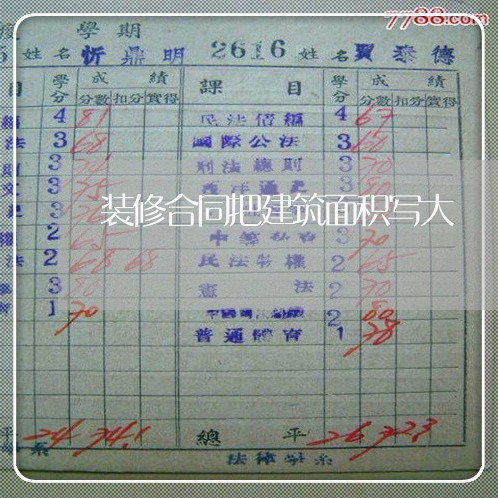 7788.com
學期
姓名 忻鼎明 2616 姓名 賈泰德
目 學分 成績 課目 學分 成績
分數 扣分 實得 分數 扣分 實得
4 81 民法債編 4 67
法 3 68 國際公法 3 60
3 刑法總則 3 70
3 75 西洋通史 3 80
装修合同把建筑面积写大
2 65 3 70
法 2 68 68 民法物權 2 65
3 80 憲法 2 70
1 70 2 80
普通體育 1 78
平 24 74.1 總平 26 72.3
系 法律學系